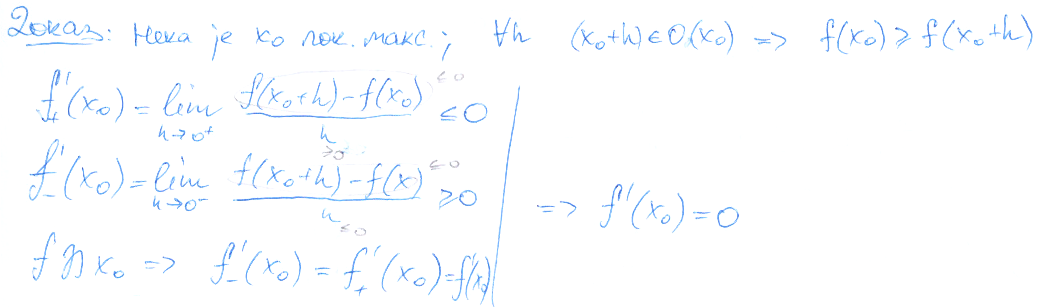 Доказ: Нека је x₀ лок. макс.; ∀h (x₀+h)∈O(x₀) => f(x₀) ≥ f(x₀+h)
f₊'(x₀) = lim_{h→0⁺} (f(x₀+h) - f(x₀))^{≤0} / h_{≥0} ≤ 0
f₋'(x₀) = lim_{h→0⁻} (f(x₀+h) - f(x))^{≤0} / h_{≤0} ≥ 0
=> f'(x₀) = 0
f x₀ => f₋'(x₀) = f₊'(x₀) = f'(x₀)